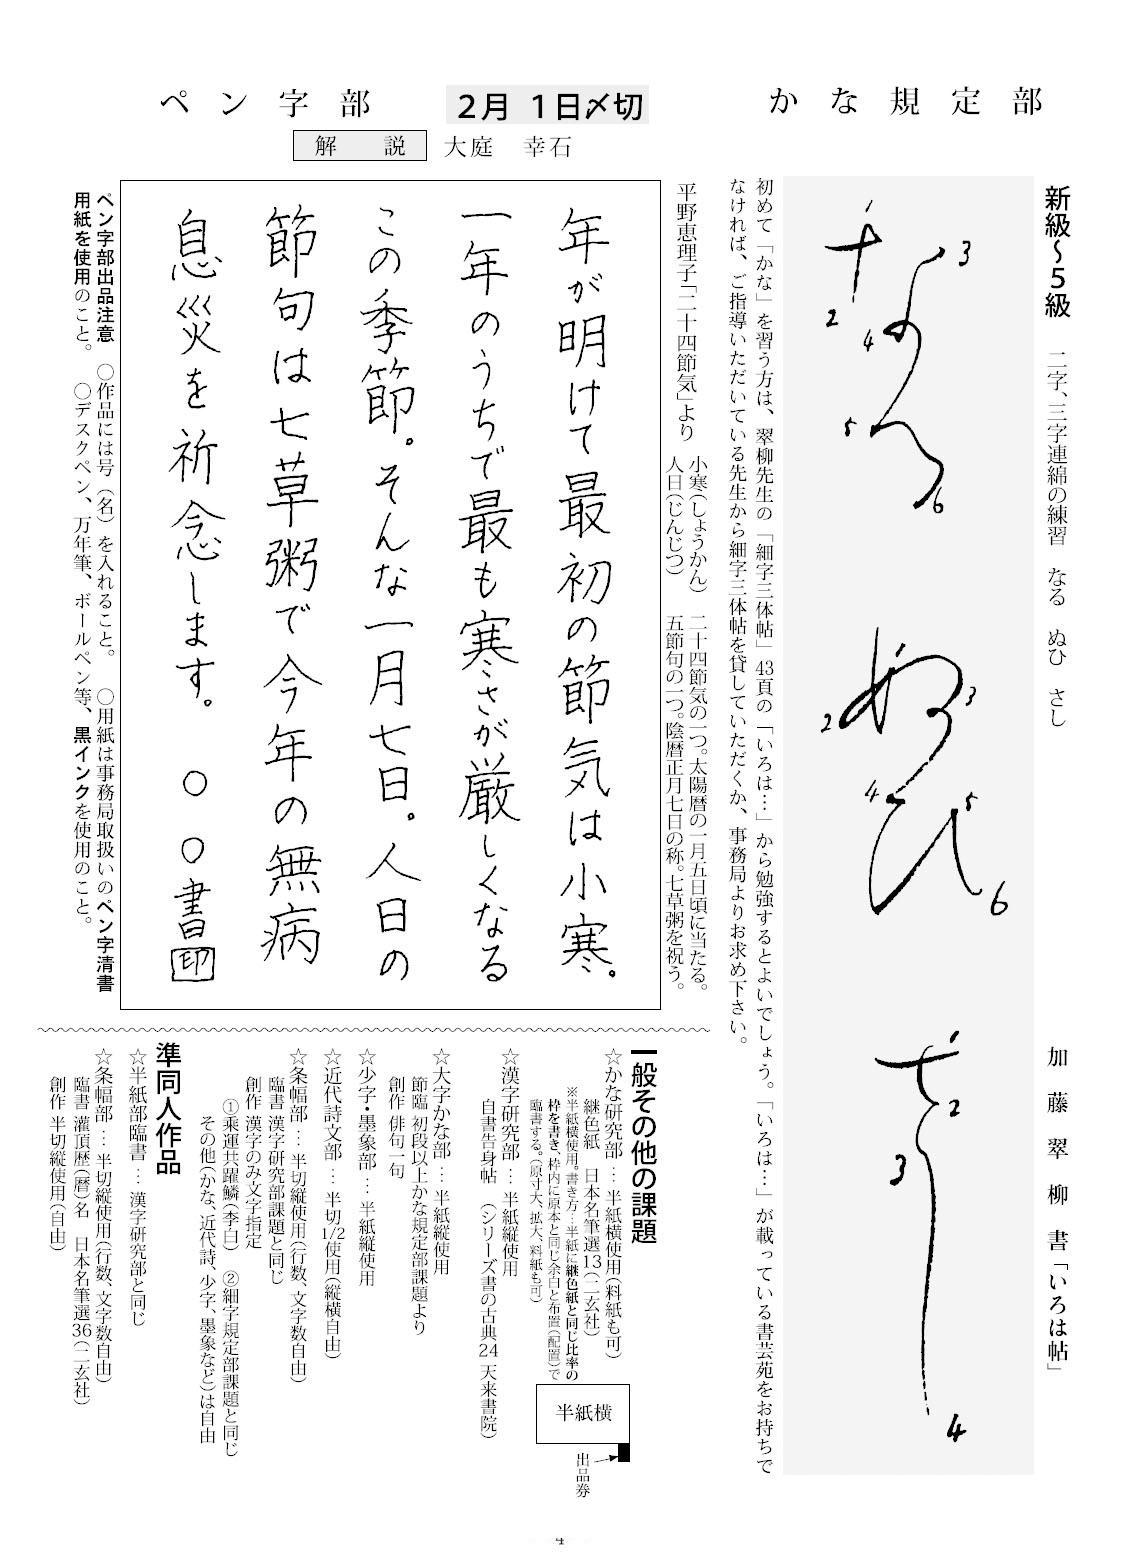 かな規定部
2月 1日〆切
ペン字部
解説 大庭 幸石
新級〜5級 二字、三字連綿の練習 なる ぬひ さし
加藤翠柳書「いろは帖」
1
2
3
4
5
6
なる
2
3
4
5
6
ぬひ
1
2
3
4
さし
初めて「かな」を習う方は、翠柳先生の「細字三体帖」43頁の「いろは…」から勉強するとよいでしょう。「いろは…」が載っている書芸苑をお持ちで
なければ、ご指導いただいている先生から細字三体帖を貸していただくか、事務局よりお求め下さい。
平野恵理子「二十四節気」より
小寒(しょうかん) 二十四節気の一つ。太陽暦の一月五日頃に当たる。
人日(じんじつ) 五節句の一つ。陰暦正月七日の称。七草粥を祝う。
年が明けて最初の節気は小寒。
一年のうちで最も寒さが厳しくなる
この季節。そんな一月七日。人日の
節句は七草粥で今年の無病
息災を祈念します。 ○○書印
ペン字部出品注意 ○作品には号(名)を入れること。 ○用紙は事務局取扱いのペン字清書
用紙を使用のこと。 ○デスクペン、万年筆、ボールペン等、黒インクを使用のこと。
一般その他の課題
☆かな研究部…半紙横使用(料紙も可)
継色紙 日本名筆選13(二玄社)
※半紙横使用。書き方…半紙に継色紙と同じ比率の
枠を書き、枠内に原本と同じ余白と布置(配置)で
臨書する。(原寸大、拡大、料紙も可)
半紙横
出品券
☆漢字研究部…半紙縦使用
自書告身帖 (シリーズ書の古典24 天来書院)
☆大字かな部…半紙縦使用
節臨 初段以上かな規定部課題より
創作 俳句一句
☆少字・墨象部…半紙縦使用
☆近代詩文部…半切1/2使用(縦横自由)
☆条幅部…半切縦使用(行数、文字数自由)
臨書 漢字研究部課題と同じ
創作 漢字のみ文字指定
①乗運共躍鱗(李白) ②細字規定部課題と同じ
その他(かな、近代詩、少字、墨象など)は自由
準同人作品
☆半紙部臨書…漢字研究部と同じ
☆条幅部…半切縦使用(行数、文字数自由)
臨書 灌頂歴(暦)名 日本名筆選36(二玄社)
創作 半切縦使用(自由)
4